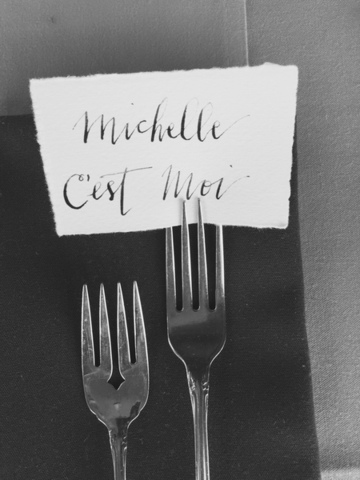 Michelle
C'est Moi